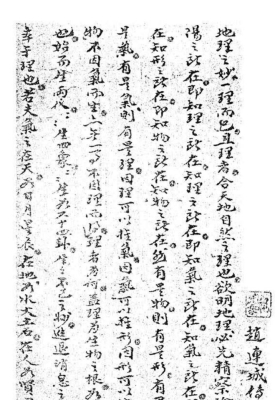 趙連城傳
地理之妙一理而已且理者合天地自然之理也欲明地理必先精察陰
陽之所在即知理之所在知理之所在即知氣之所在知氣之所
在知形之所在即知物之所在知物之所在然有是物則有是形有是
是氣有是氣則有是理因理可以推氣因氣可以推形因形可以
物不因氣而生亦無一物不因理而理者為何蓋理為生物之根
也始而生兩生四象生生不已之妙進退消息之
乎理也若夫氣之在天為日月星辰在地為水火土石在人為賢